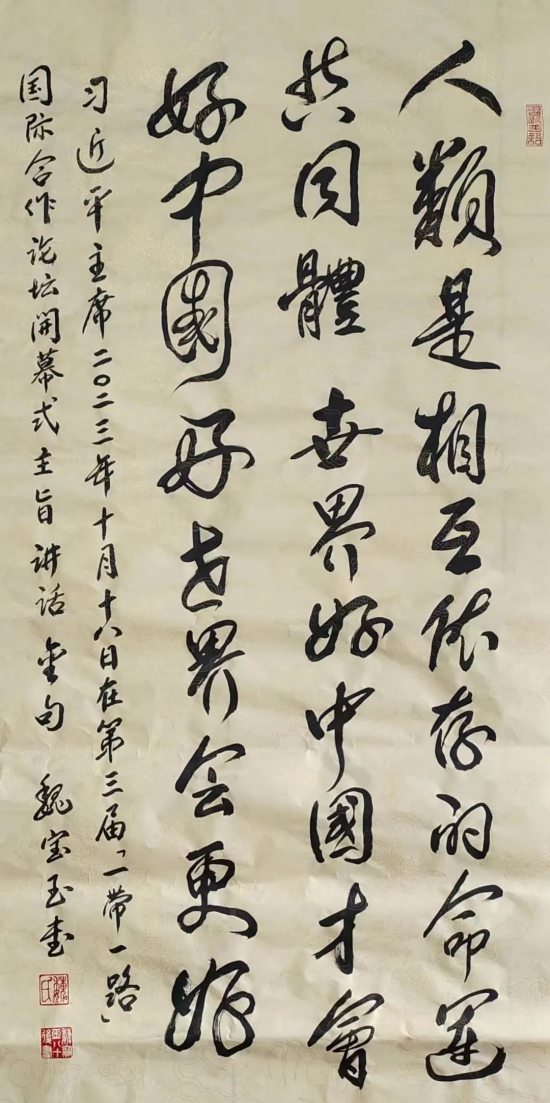 人類是相互依存的命運
共同體 世界好中國才會
好中國好世界会更好
习近平主席二〇二三年十月十八日在第三届「一带一路」
国际合作论坛開幕式主旨讲话金句 魏宝玉书